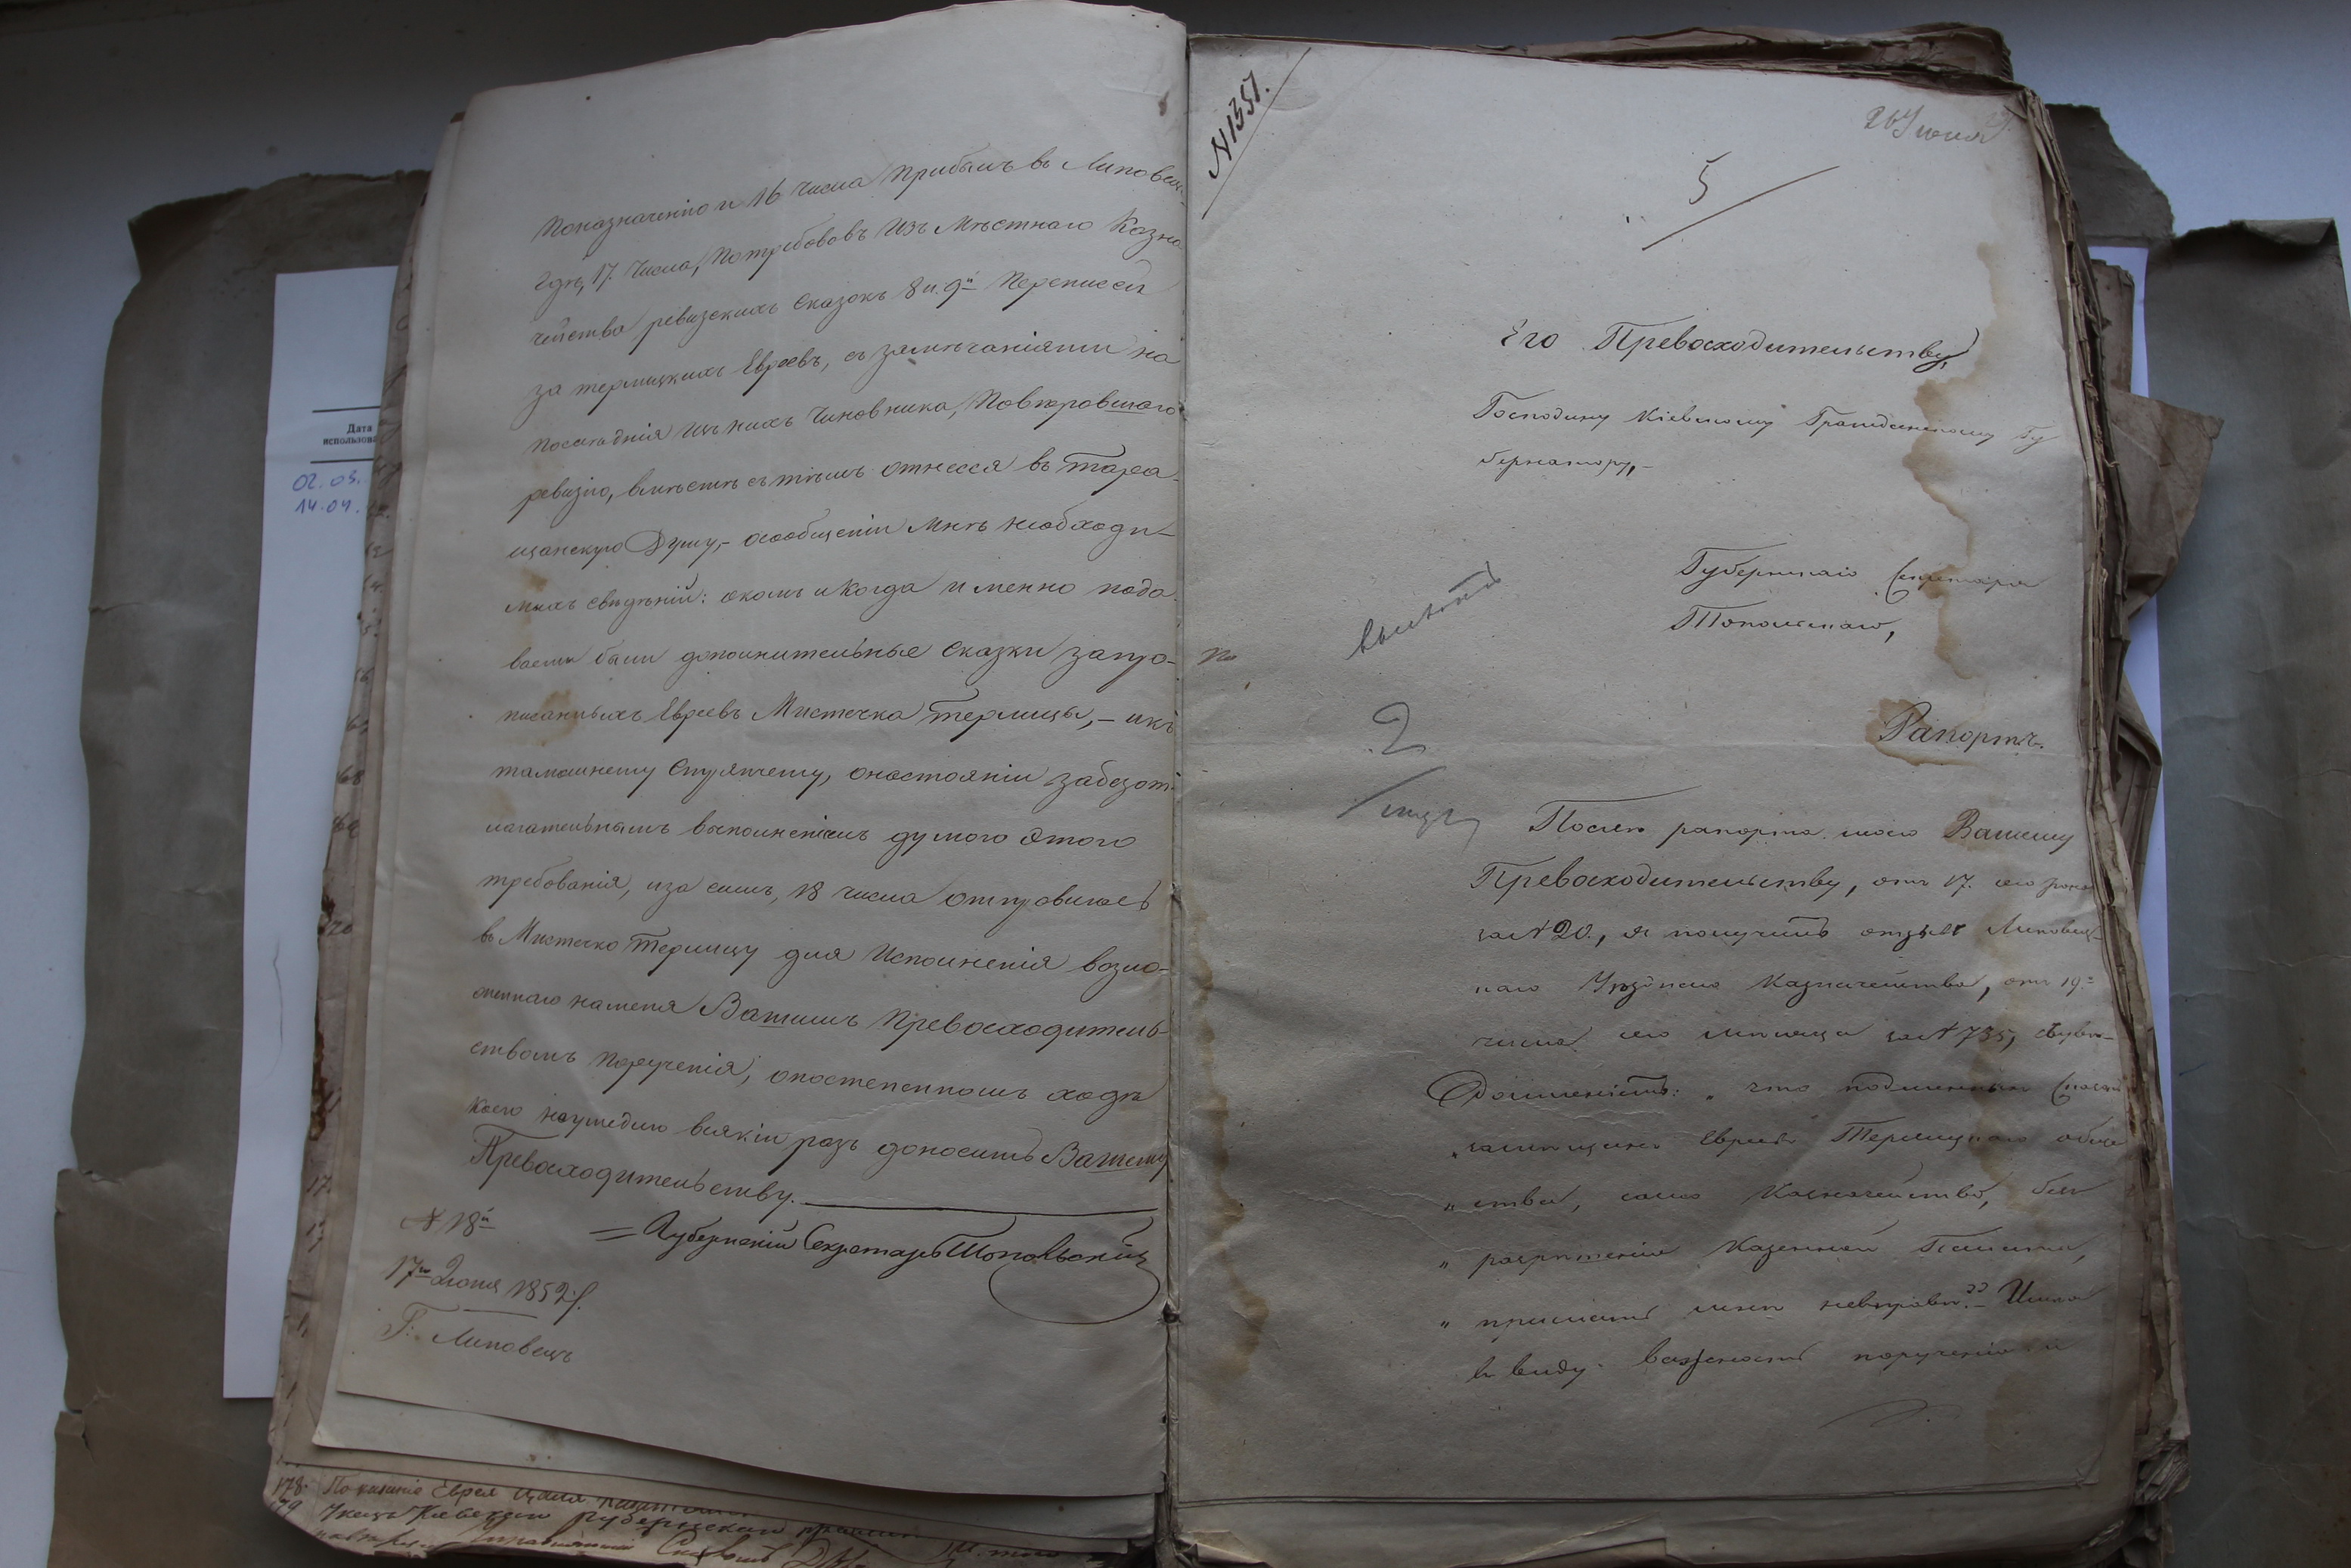 Поназначенію и 16 числа прибылъ въ Липовец,
гдѣ, 17. числа, потребовавъ изъ Мѣстнаго Казна
чейства ревизскихъ сказокъ 8 и 9й переписей
за терлицкихъ Евреевъ, съ замѣчаніями на
послѣднія изъ нихъ чиновника, повѣрявшаго
ревизію, вмѣстѣ съ тѣмъ отнесся въ Тара-
щанскую Думу,- осообщеніи мнѣ необходи-
мыхъ свѣдѣній: окомъ и когда именно пода-
ваемы были дополнительные сказки запро-
писанныхъ Евреевъ Мистечка Терлицы,- икъ
тамошнему Стряпчему, онастояніи забезот-
лагательнымъ выполненіемъ думою этого
требованія, иза симъ, 18 числа отправилсь
въ Мистечко Терлицу для исполненія возло-
женнаго наменя Вашимъ Превосходитель-
ствомъ порученія, опостепенномъ ходѣ
коего неупедлю всякій разъ доносить Вашему
Превосходительству.
N 18й
Губернскій Секретарь Топольскій
17го Июня 1852 г.
Г: Липовецъ
N 1351.
26 Июня
5
Его Превосходительству,
Господину Кіевскому Гражданскому Гу
бернатору,-
Губернскаго Секретаря
Топольскаго,
2
Рапортъ.
Послѣ рапорта моего Вашему
Превосходительству, отъ 17. сего Іюня
за N 20., я получилъ отзывъ Липовец-
каго Уѣзднаго Казначейства, отъ 19.
числа сего мѣсяца за N 735, съуве-
домленіемъ: „что подлинныхъ сказокъ
„ Евреевъ Терлицкаго обще
„ства, само Казначейство, безъ
„разрѣшенія Казенной Палаты,
„прислать мнѣ невправѣ." Имѣя
въ виду важность порученія и
Дата
использова
02.03.
14.04.
178. Показаніе Еврея
79 Указъ Кіевского Губернскаго правлен